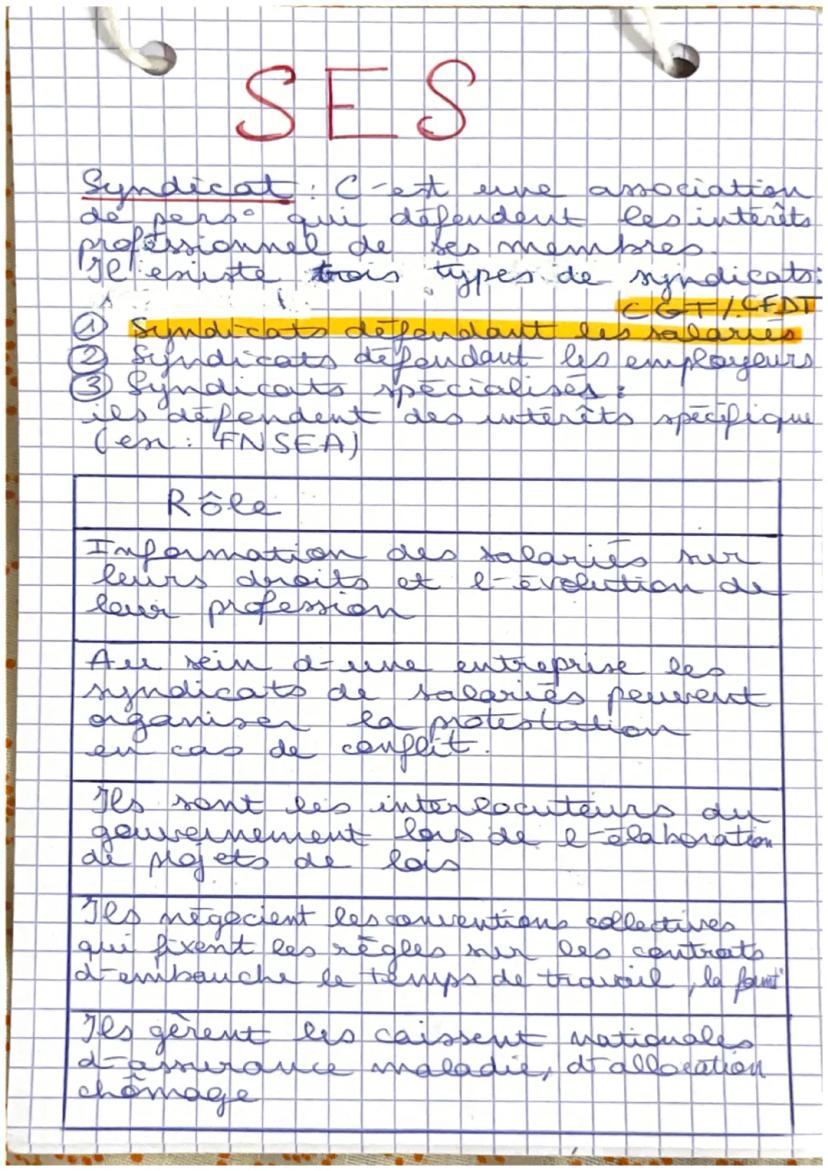 SES
Syndicat : C-est une association
de pers° qui défendent les intérêts
professionnel de ses membres
Il existe trois types de syndicats :
CGT/CFDT
① Syndicats défendant les salariés
② Syndicats défendant les employeurs
③ Syndicats spécialisés :
ils défendent des intérêts spécifique
(ex : FNSEA)
Rôle
Information des salariés sur
leurs droits et l-évolution de
leur profession
Au sein d-une entreprise les
syndicats de salariés peuvent
organiser la protestation
en cas de conflit.
Ils sont les interlocuteurs du
gouvernement lors de l-élaboration
de projets de lois
Ils négocient les conventions collectives
qui fixent les règles sur les contrats
d-embauche le temps de travail, la
Ils gèrent les caissent nationales
d-assurance maladie, d-allocation
chômage